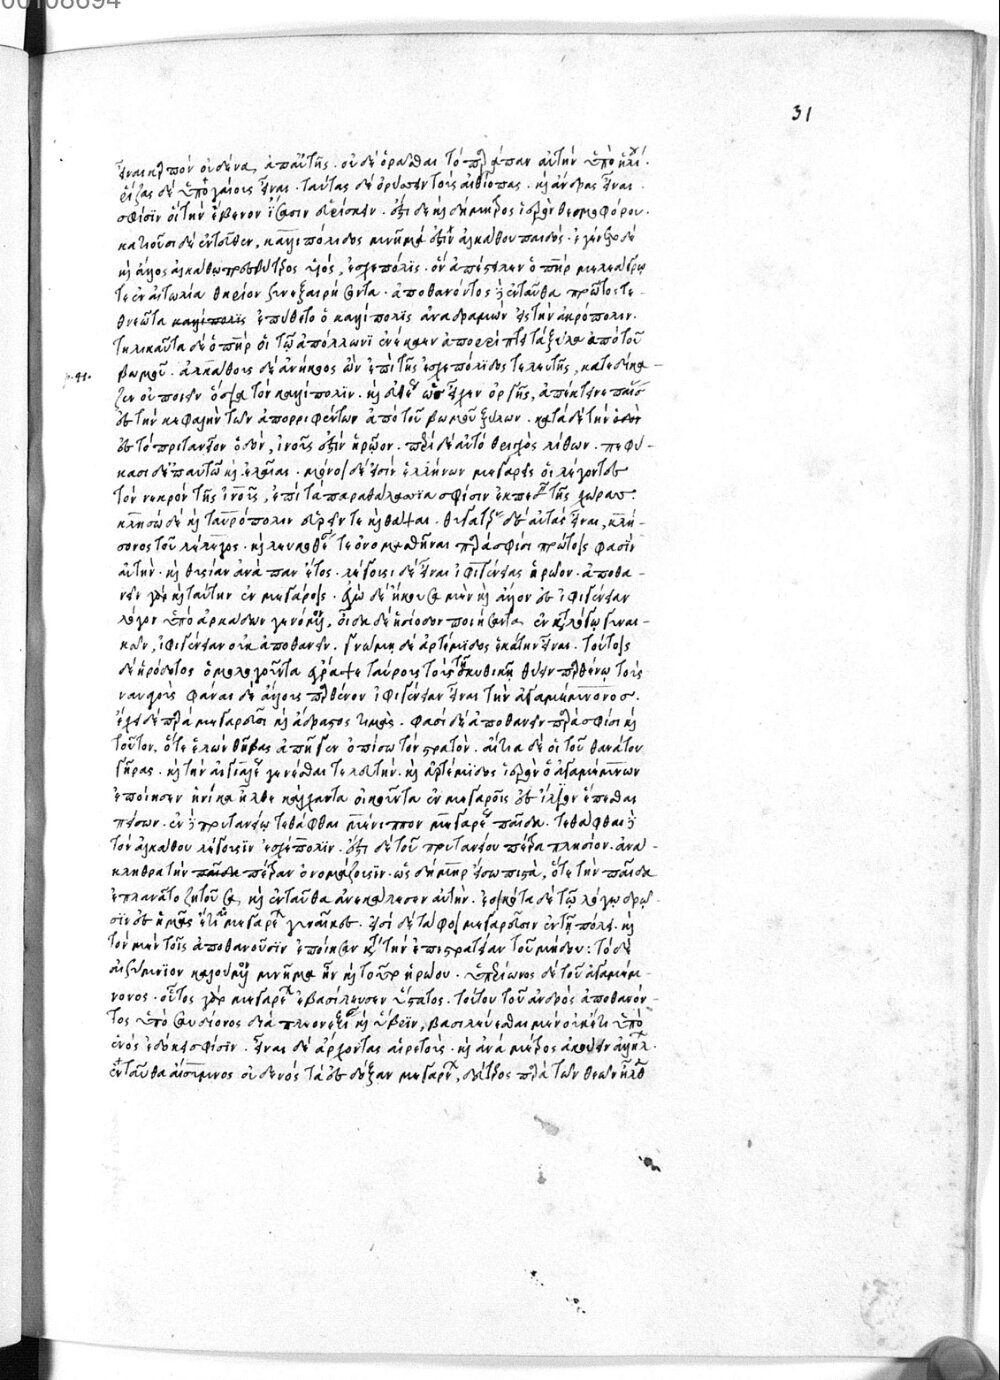 31
εἶναι καρπὸν οὐδένα, ἀπ' αὐτῆς. οὐδὲ ὁρᾶσθαι τὸ παράπαν αὐτὴν ὑπὸ ἡλίου.
ῥίζας δὲ ὑπογαίους εἶναι. ταύτας δὲ ὀρύσσειν τοὺς αἰθίοπας. καὶ ἄνδρας εἶναι.
σφίσιν οἳ τὴν ἔβενον ἴσασιν εὑρίσκειν. ἔστι δὲ καὶ δήμητρος ἱερὸν θεσμοφόρου.
κατιοῦσι δὲ ἐντεῦθεν, καλλιπόλιδος μνῆμά ἐστιν ἀλκάθου παιδός. ἐγένετο δὲ
καὶ ἄλλος ἀλκάθω πρεσβύτερος υἱός, ἐσχέπολις. ὃν ἀπέστειλεν ὁ πατὴρ μελεάγρω
τε ἐν αἰτωλία θηρίον ξυνεξαιρήσοντα. ἀποθανόντος δὲ ἐνταῦθα πρῶτος τε-
θνεῶτα καλλίπολις ἐπύθετο ὁ καλλίπολις ἀναδραμὼν ἐς τὴν ἀκρόπολιν.
τηνικαῦτα δὲ ὁ πατὴρ οἱ τῷ ἀπόλλωνι ἐνέκαιεν ἀπορρίπτει τὰ ξύλα ἀπὸ τοῦ
βωμοῦ. ἀλκάθους δὲ ἀνήκοος ὢν ἐπὶ τῆς ἐσχεπόλιδος τελευτῆς, κατεδίκα-
p. 41.
ζεν οὐ ποιεῖν ὅσια τὸν καλλίπολιν. καὶ εὐθέως ὡς εἶχεν ὀργῆς, ἀπέκτεινε παίσας
ἐς τὴν κεφαλὴν τῶν ἀπορριφέντων ἀπὸ τοῦ βωμοῦ ξύλων. κατὰ δὲ τὴν ὁδὸν
ἐς τὸ πριτανεῖον ὁδόν, ἰνοῦς ἐστὶν ἡρῷον. περὶ δὲ αὐτὸ θριγκὸς λίθων. πεφύ-
κασι δὲ ἐπ' αυτῶ καὶ ἐλαῖαι. μόνοι δὲ εἰσὶν ἑλλήνων μεγαρεῖς οἱ λέγοντες
τὸν νεκρὸν τῆς ἰνοῦς, ἐπὶ τὰ παραθαλάσσια σφίσιν ἐκπεσεῖν τῆς χώρας.
κλησὼ δὲ καὶ ταυρόπολιν εὑρεῖν τε καὶ θάψαι. θυγατέρας δὲ αὐτὰς εἶναι, κλή-
σωνος τοῦ λέλεγος. καὶ λευκοθέαν τε ὀνομασθῆναι παρὰ σφίσι πρώτοις φασὶν
αὐτήν. καὶ θυσίαν ἀνὰ παν ἔτος. λέγουσι δὲ εἶναι ἰφιγένειας ἡρῷον. ἀποθα-
νεῖν γὰρ καὶ ταύτην ἐν μεγάροις. ἐγὼ δὲ ἤκουσα μὲν καὶ ἄλλον ἐς ἰφιγένειαν
λόγον ὑπὸ ἀρκάδων λεγόμενον, οἶδα δὲ ἡσίοδον ποιήσαντα ἐν καταλόγῳ γυναι-
κῶν, ἰφιγένειαν οὐκ ἀποθανεῖν. γνώμη δὲ ἀρτέμιδος ἑκάτην εἶναι. τούτοις
δὲ ἡρόδοτος ὁμολογοῦντα ἔγραψε ταύρους τοὺς πρὸς τῇ σκυθικῇ θύειν παρθένῳ τοὺς
ναυαγοὺς φάναι δὲ αὐτοὺς παρθένον ἰφιγένειαν εἶναι τὴν ἀγαμέμνονος.
ἔχει δὲ παρὰ μεγαρεῦσι καὶ ἄδραστος τιμάς. φασὶ δὲ ἀποθανεῖν παρὰ σφίσι καὶ
τοῦτον, ὅτε ἑλὼν θήβας ἀπῆγεν ὀπίσω τὸν στρατόν. αἴτια δέ οἱ τοῦ θανάτου
γῆρας. καὶ τὴν αἰγιαλέως γενέσθαι τελευτήν. καὶ ἀρτέμιδος ἱερὸν ὁ ἀγαμέμνων
ἐποίησεν ἡνίκα ἦλθε κάλχαντα οἰκοῦντα ἐν μεγάροις ἐς ἴλιον ἕπεσθαι
πείσων. ἐν δὲ πριτανείῳ τεθάφθαι μὲν εὔιππον μεγαρέως παῖδα. τεθάφθαι δὲ
τὸν ἀλκάθου λέγουσιν ἐσχέπολιν. ἔστι δὲ τοῦ πριτανείου πέτρα πλησίον. ἀνα-
κληθρα τὴν παῖδα πέτραν ὀνομάζουσιν. ὡς δημήτηρ εἴσω πιστὰ, ὅτε τὴν παῖδα
ἐπλανᾶτο ζητοῦσα, καὶ ἐνταῦθα ἀνεκάλεσεν αὐτήν. ἐοικότα δὲ τῷ λόγω δρῶ-
σιν ἐς ἡμᾶς ἔτι αἱ μεγαρέων γυναῖκες. εἰσὶ δὲ τάφοι μεγαρεῦσιν ἐν τῇ πόλει. καὶ
τὸν μὲν τοῖς ἀποθανοῦσιν ἐποίησαν κατὰ τὴν ἐπιστρατείαν τοῦ μήδου. τὸ δὲ
αἰσύμνιον καλούμενον μνῆμα ἦν καὶ τοῦτο ἡρώων. ὑπερίωνος δὲ τοῦ ἀγαμέμ-
νονος. οὗτος γὰρ μεγαρέων ἐβασίλευσεν ὕστατος. τούτου τοῦ ἀνδρὸς ἀποθανόν-
τος ὑπὸ σανδίονος διὰ πλεονεξίαν καὶ ὕβριν, βασιλεύεσθαι μὲν οὐκέτι ὑπὸ
ἑνὸς ἐδόκει σφίσιν. εἶναι δὲ ἄρχοντας αἱρετούς. καὶ ἀνὰ μέρος ἀκούειν ἀλλήλων.
ἐνταῦθα αἴσυμνος οὐδενὸς τὰ ἐς δόξαν μεγαρέων, δεύτερος παρὰ τῶν θεῶν ἦλθεν